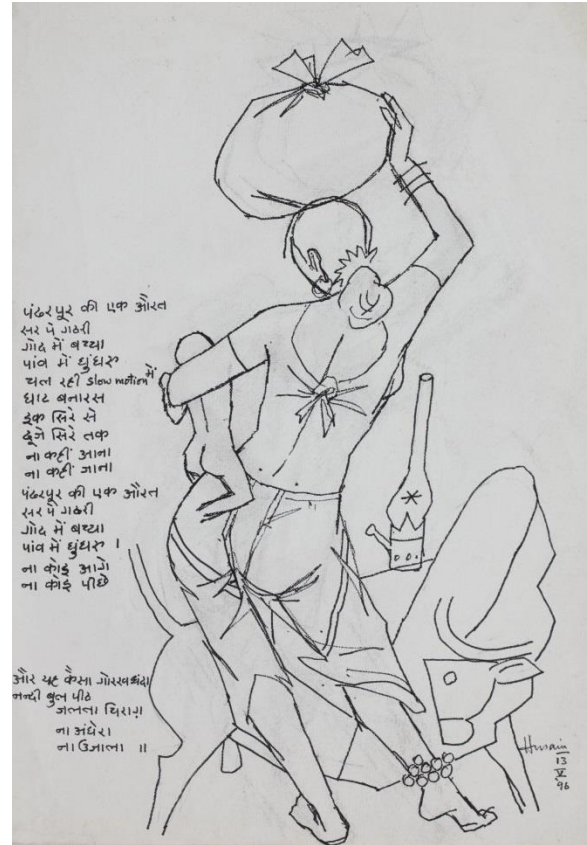 पंढरपूर की एक औरत
सर पे गठरी
गोद में बच्चा
पांव में घुंघरू
चल रही slow motion में
घाट बनारस
इक सिरे से
दूजे सिरे तक
ना कहीं आना
ना कहीं जाना
पंढरपूर की एक औरत
सर पे गठरी
गोद में बच्चा
पांव में घुंघरू ।
ना कोई आगे
ना कोई पीछे
और यह कैसा गोरखधंदा
नन्दी बुल पीठ
जलता चिराग़
ना अंधेरा
ना उजाला ॥
Husain
13
V
96